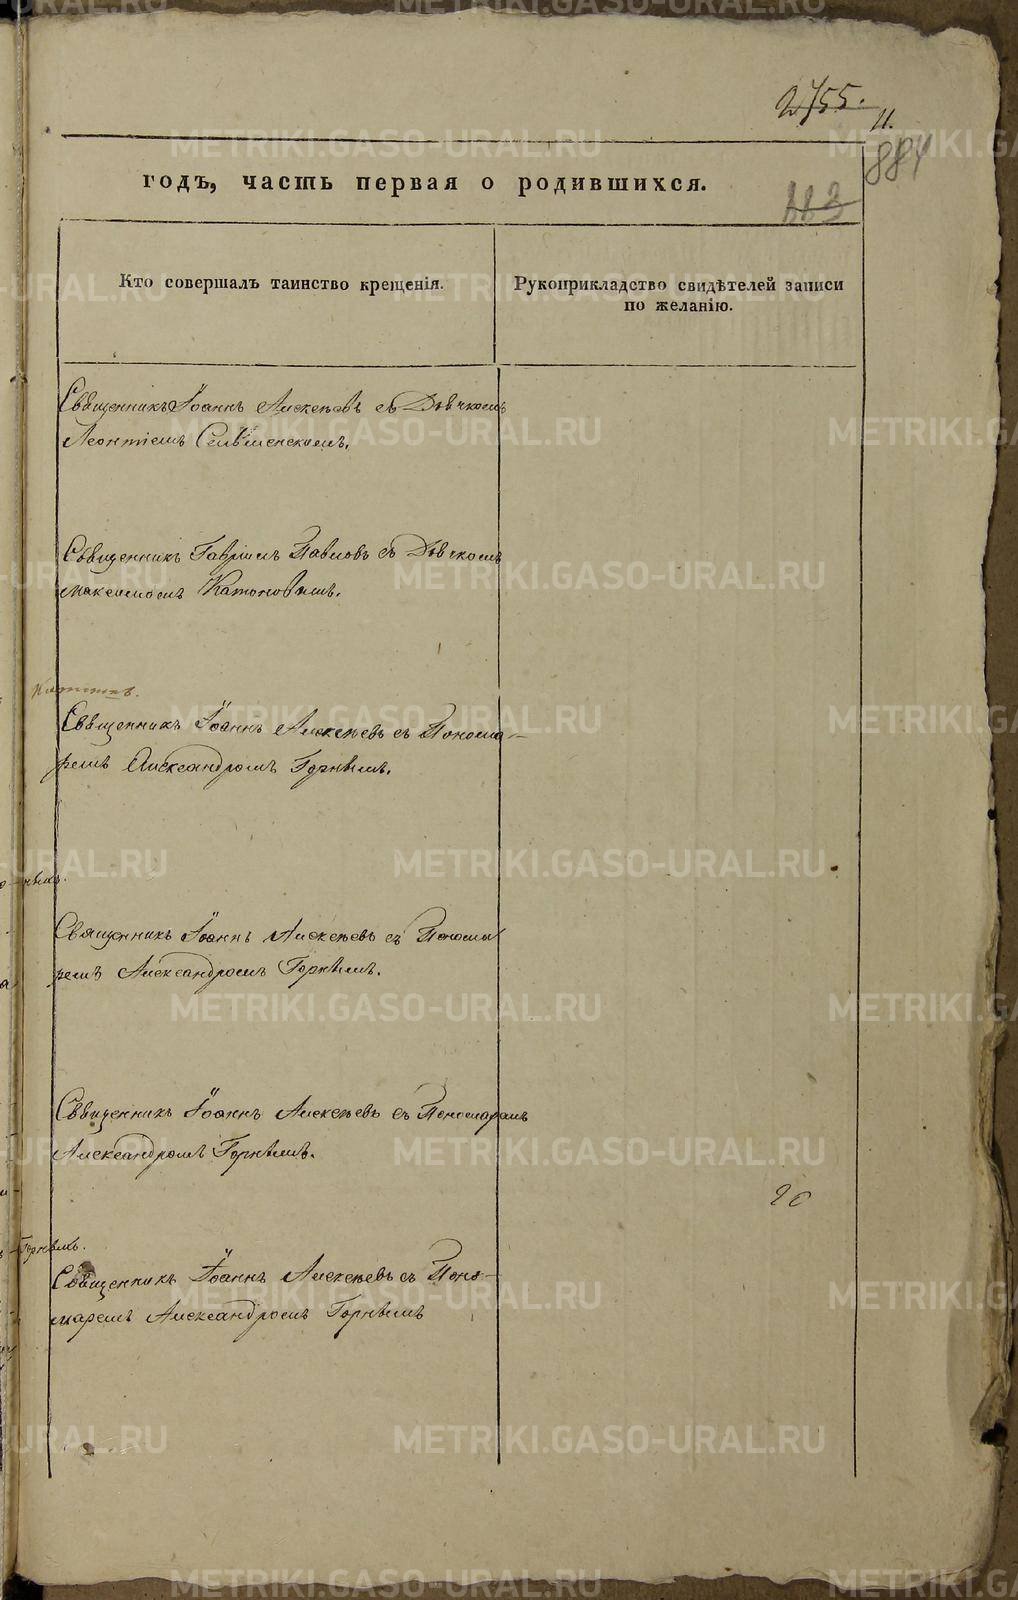 2755.
11.
884
годъ, часть первая о родившихся.
883
Кто совершалъ таинство крещенія.
Рукоприкладство свидѣтелей записи
по желанію.
Священникъ Іоаннъ Алексѣевъ съ Дьячкомъ
Леонтіемъ
Священникъ Гавріилъ Павловъ съ Дьячкомъ
Максимомъ Катоновымъ.
Священникъ Іоаннъ Алексѣевъ съ Понома-
ремъ Александромъ Горнымъ.
Священникъ Іоаннъ Алексѣевъ съ Понома
ремъ Александромъ Горнымъ.
Священникъ Іоаннъ Алексѣевъ съ Пономаремъ
Александромъ Горнымъ.
20
Горнымъ.
Священникъ Іоаннъ Алексѣевъ съ Поно-
маремъ Александромъ Горнымъ
METRIKI.GASO-URAL.RU